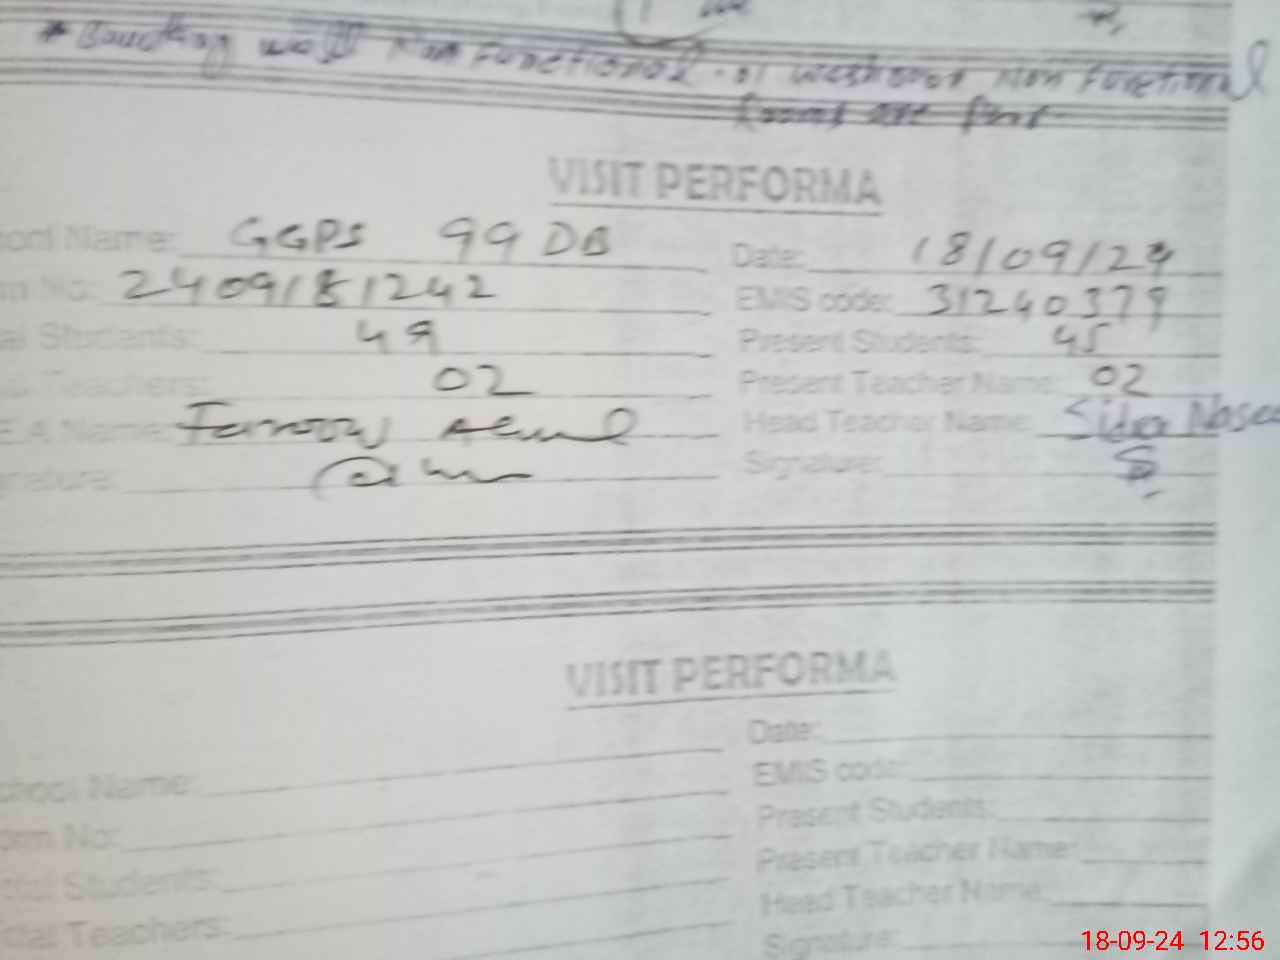 * Boundary wall Non Functional. 01 washroom Non Functional
Rooms are
VISIT PERFORMA
ool Name: GGPS 99 DB Date: 18/09/24
m No: 2409181242 EMIS code: 31240379
al Students: 49 Present Students: 45
Teachers: 02 Present Teacher Name: 02
E.A Name: Farooq Head Teacher Name: Sidra
nature: Signature:
VISIT PERFORMA
Date:
chool Name: EMIS code:
orm No: Present Students:
otal Students: Present Teacher Name:
otal Teachers: Head Teacher Name:
Signature:
18-09-24 12:56